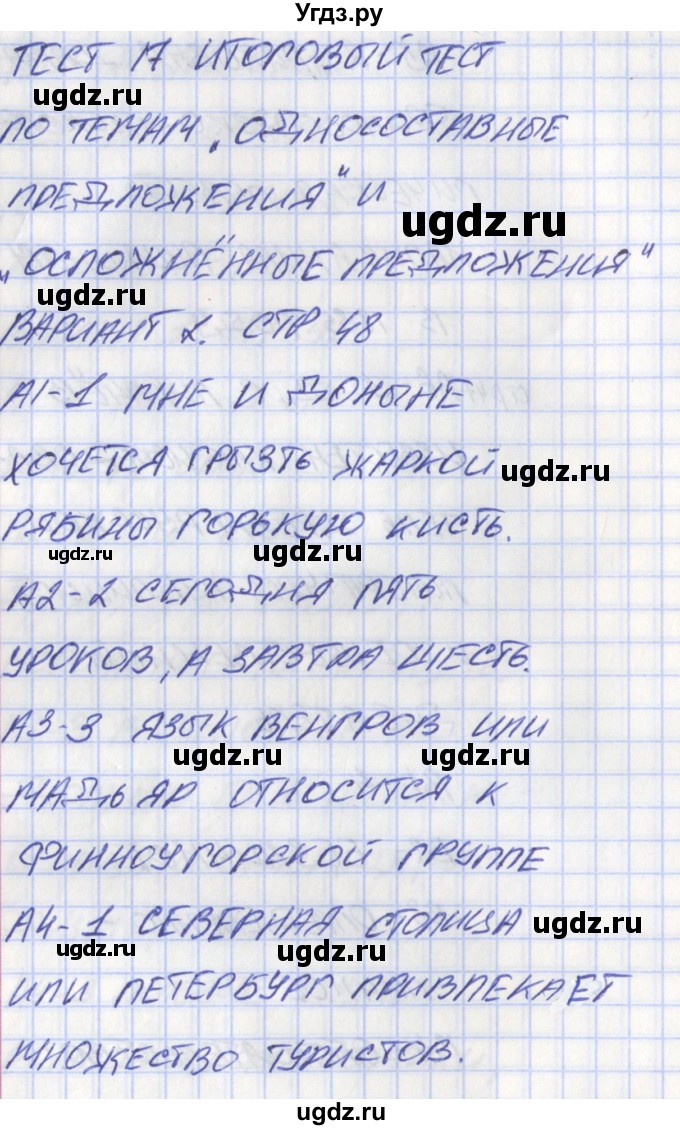 Угдз.ру
ТЕСТ 17 ИТОГОВЫЙ ТЕСТ
ugdz.ru
ПО ТЕМАМ „ОДНОСОСТАВНЫЕ
ПРЕДЛОЖЕНИЯ" И
ugdz.ru
„ОСЛОЖНЁННЫЕ ПРЕДЛОЖЕНИЯ"
ugdz.ru
ВАРИАНТ 2. СТР 48
А1-1 МНЕ И ДОНЫНЕ
ugdz.ru
ХОЧЕТСЯ ГРЫЗТЬ ЖАРКОЙ
ugdz.ru
РЯБИНЫ ГОРЬКУЮ КИСТЬ.
ugdz.ru ugdz.ru
А2-2 СЕГОДНЯ ПЯТЬ
ugdz.ru
УРОКОВ, А ЗАВТРА ШЕСТЬ.
А3-3 ЯЗЫК ВЕНГРОВ ИЛИ
ugdz.ru ugdz.ru
МАДЬЯР ОТНОСИТСЯ К
ФИННОУГОРСКОЙ ГРУППЕ
А4-1 СЕВЕРНАЯ СТОЛИЦА
ugdz.ru ugdz.ru ugdz.ru
ИЛИ ПЕТЕРБУРГ ПРИВЛЕКАЕТ
МНОЖЕСТВО ТУРИСТОВ.
ugdz.ru